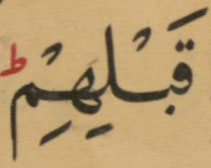 قَبْلِهِمْ ؕ